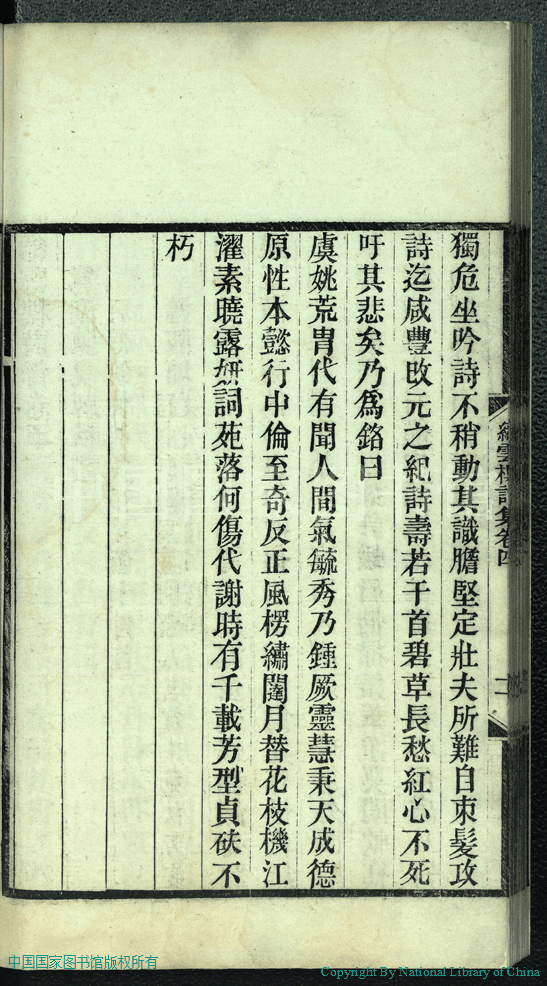 獨危坐吟詩不稍動其識膽堅定壯夫所難自束髮攻
詩迄咸豐改元之紀詩壽若干首碧草長愁紅心不死
吁其悲矣乃爲銘曰
虞姚荒胄代有聞人間氣毓秀乃鍾厥靈慧秉天成德
原性本懿行中倫至奇反正風楞繡闥月替花枝機江
濯素曉露妍詞苑落何傷代謝時有千載芳型貞砆不
朽
雲樓詩集卷四
二
中国国家图书馆版权所有
Copyright By National Library of China